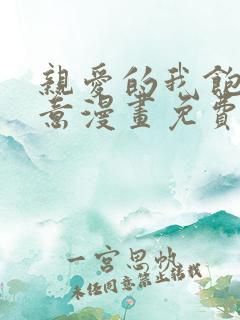 親愛的我飽
意漫畫免費
一宮思帆
未經同意禁止轉載